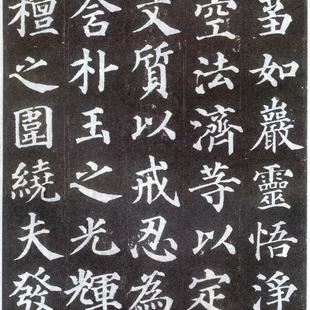 芻如巖靈悟淨
空法濟等以定
文質以戒忍為
含朴玉之光輝
檀之圍繞夫發